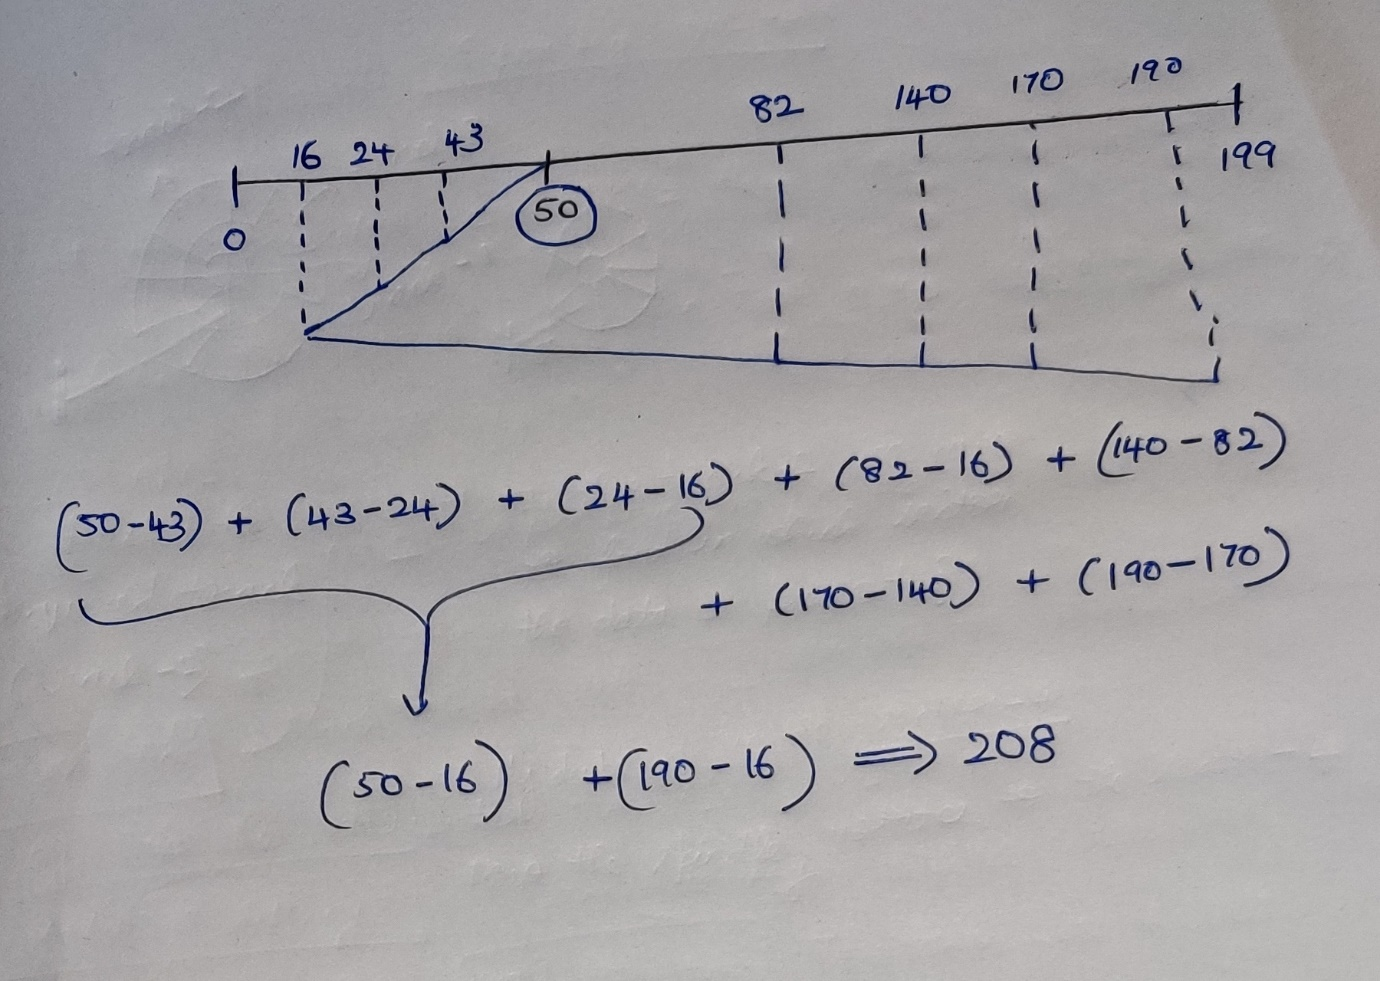 16 24 43 82 140 170 190
0 50 199
(50-43) + (43-24) + (24-16) + (82-16) + (140-82)
+ (170-140) + (190-170)
(50-16) + (190-16) ⇒ 208